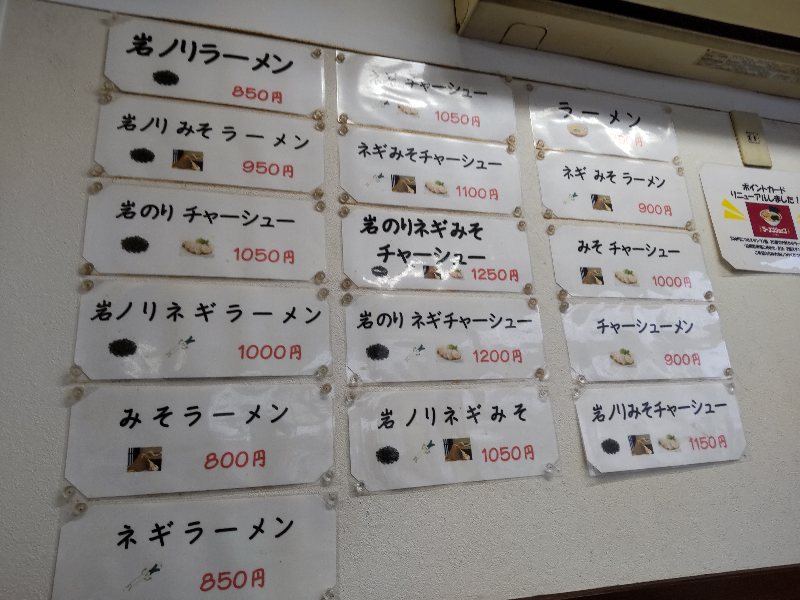 岩ノリラーメン
850円
岩ノリみそラーメン
950円
岩のりチャーシュー
1050円
岩ノリネギラーメン
1000円
みそラーメン
800円
ネギラーメン
850円
チャーシュー
1050円
ネギみそチャーシュー
1100円
岩のりネギみそ
チャーシュー
1250円
岩のりネギチャーシュー
1200円
岩ノリネギみそ
1050円
ラーメン
円
ネギみそラーメン
900円
みそチャーシュー
1000円
チャーシューメン
900円
岩ノリみそチャーシュー
1150円
ポイントカード
リニューアルしました!